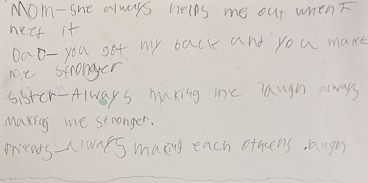 MOM-She always helps me out when I
neet it
Dad-you got my back and you make
me stronger
Sister-Always making me laugh always
making me stronger.
Friends-Always making each others laugh